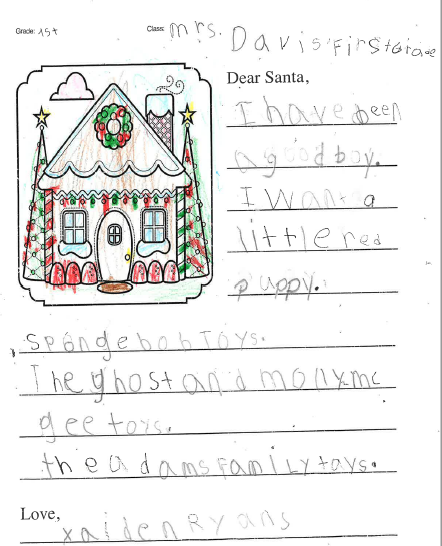 Grade: 1st
Class: Mrs. Davis First Grade
Dear Santa,
I have been
a good boy.
I want a
little red
puppy.
Spongebob Toys.
The ghost and molly mc
gee toys.
the adams family toys.
Love,
xaiden Ryans